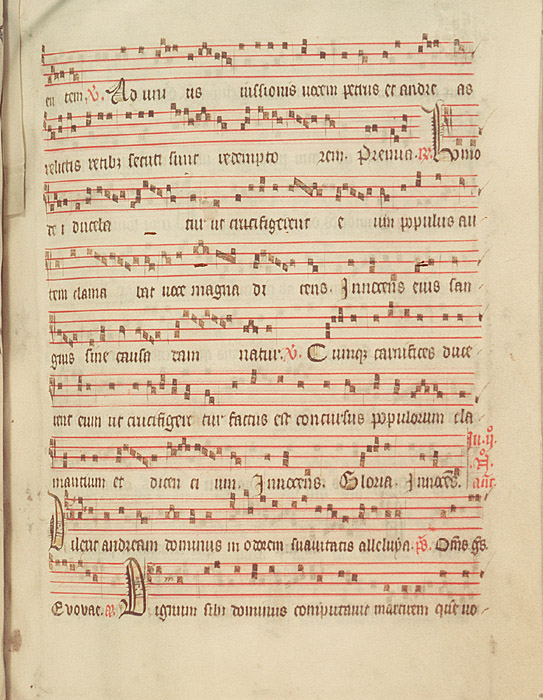 en tem. V. Ad uni us iussionis uocem petrus et andre as
relictis retibz secuti sunt redempto rem. Premia. R. Homo
de i duceba tur ut crucifigerent e um populus au
tem clama bat uoce magna di cens. Innocens eius san
guis sine causa dam natur. V. Cumqz carnifices duce
rent eum ut crucifigere tur factus est concursus populorum cla
mantium et dicen ci um. Innocens. Gloria. Innocens.
In. ij. No. ant.
Dilexit andream dominus in odorem suauitatis alleluya. ps. Oms gs.
Euouae. a. Dignum sibi dominus computauit martirem que uo